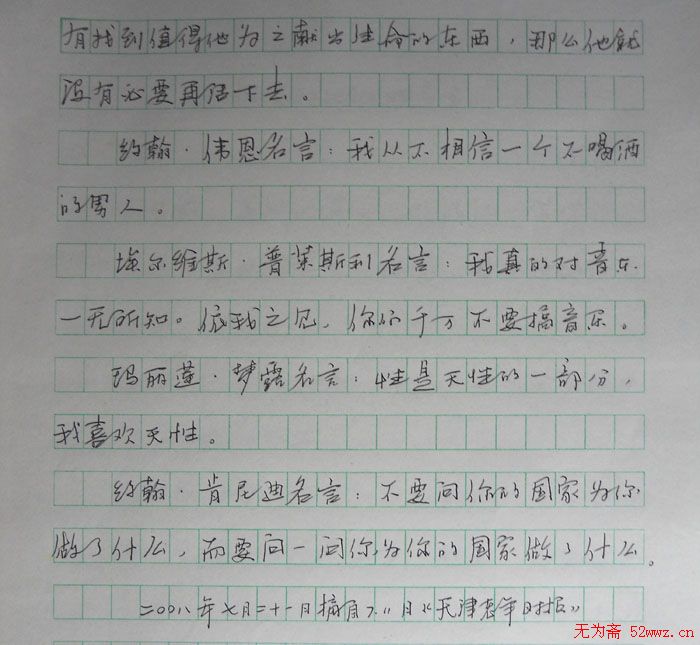 有找到值得他为之献出生命的东西，那么他就
没有必要再活下去。
约翰·伟恩名言：我从不相信一个不喝酒
的男人。
埃尔维斯·普莱斯利名言：我真的对音乐
一无所知。依我之见，你们千万不要搞音乐。
玛丽莲·梦露名言：性是天性的一部分，
我喜欢天性。
约翰·肯尼迪名言：不要问你的国家为你
做了什么，而要问一问你为你的国家做了什么。
二〇〇八年七月二十一月摘自《天津老年时报》
无为斋 52wwz.cn